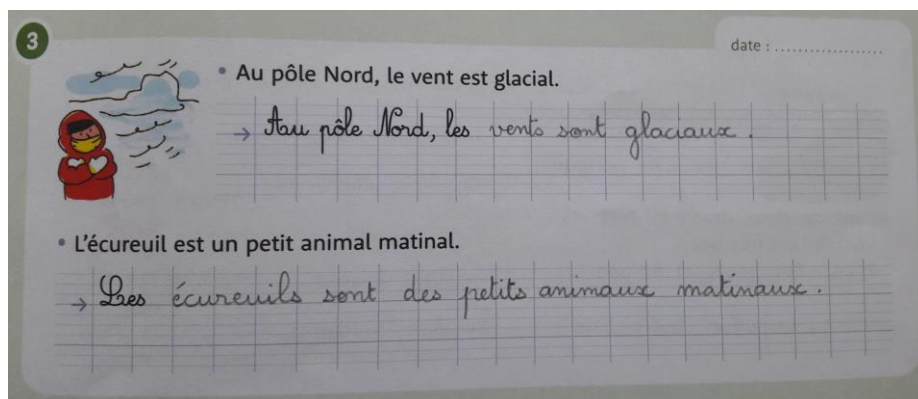 3
date : ...................
• Au pôle Nord, le vent est glacial.
→ Au pôle Nord, les vents sont glaciaux.
• L'écureuil est un petit animal matinal.
→ Les écureuils sont des petits animaux matinaux.